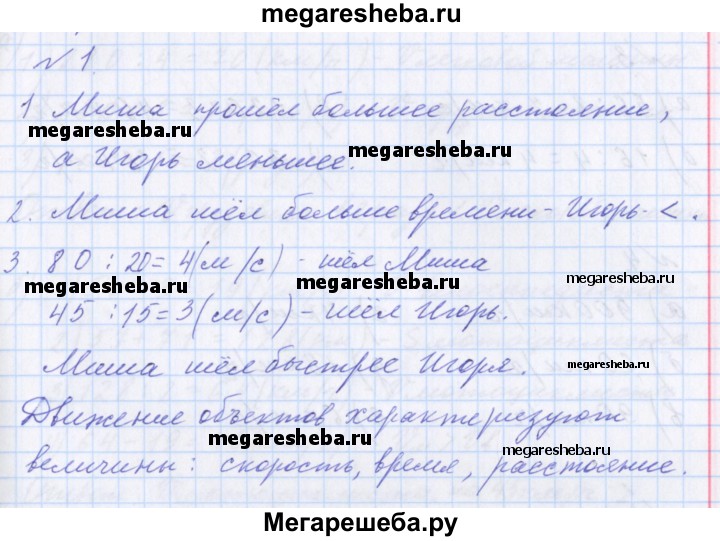 megaresheba.ru
№1.
1 Миша прошёл большее расстояние,
megaresheba.ru
а Игорь меньшее.
megaresheba.ru
2. Миша шёл больше времени - Игорь - <.
3. 80 : 20 = 4(м/с) - шёл Миша
megaresheba.ru
megaresheba.ru
megaresheba.ru
45 : 15 = 3(м/с) - шёл Игорь.
Миша шёл быстрее Игоря.
megaresheba.ru
Движение объектов характеризуют
megaresheba.ru
величины: скорость, время, расстояние.
megaresheba.ru
Мегарешеба.ру